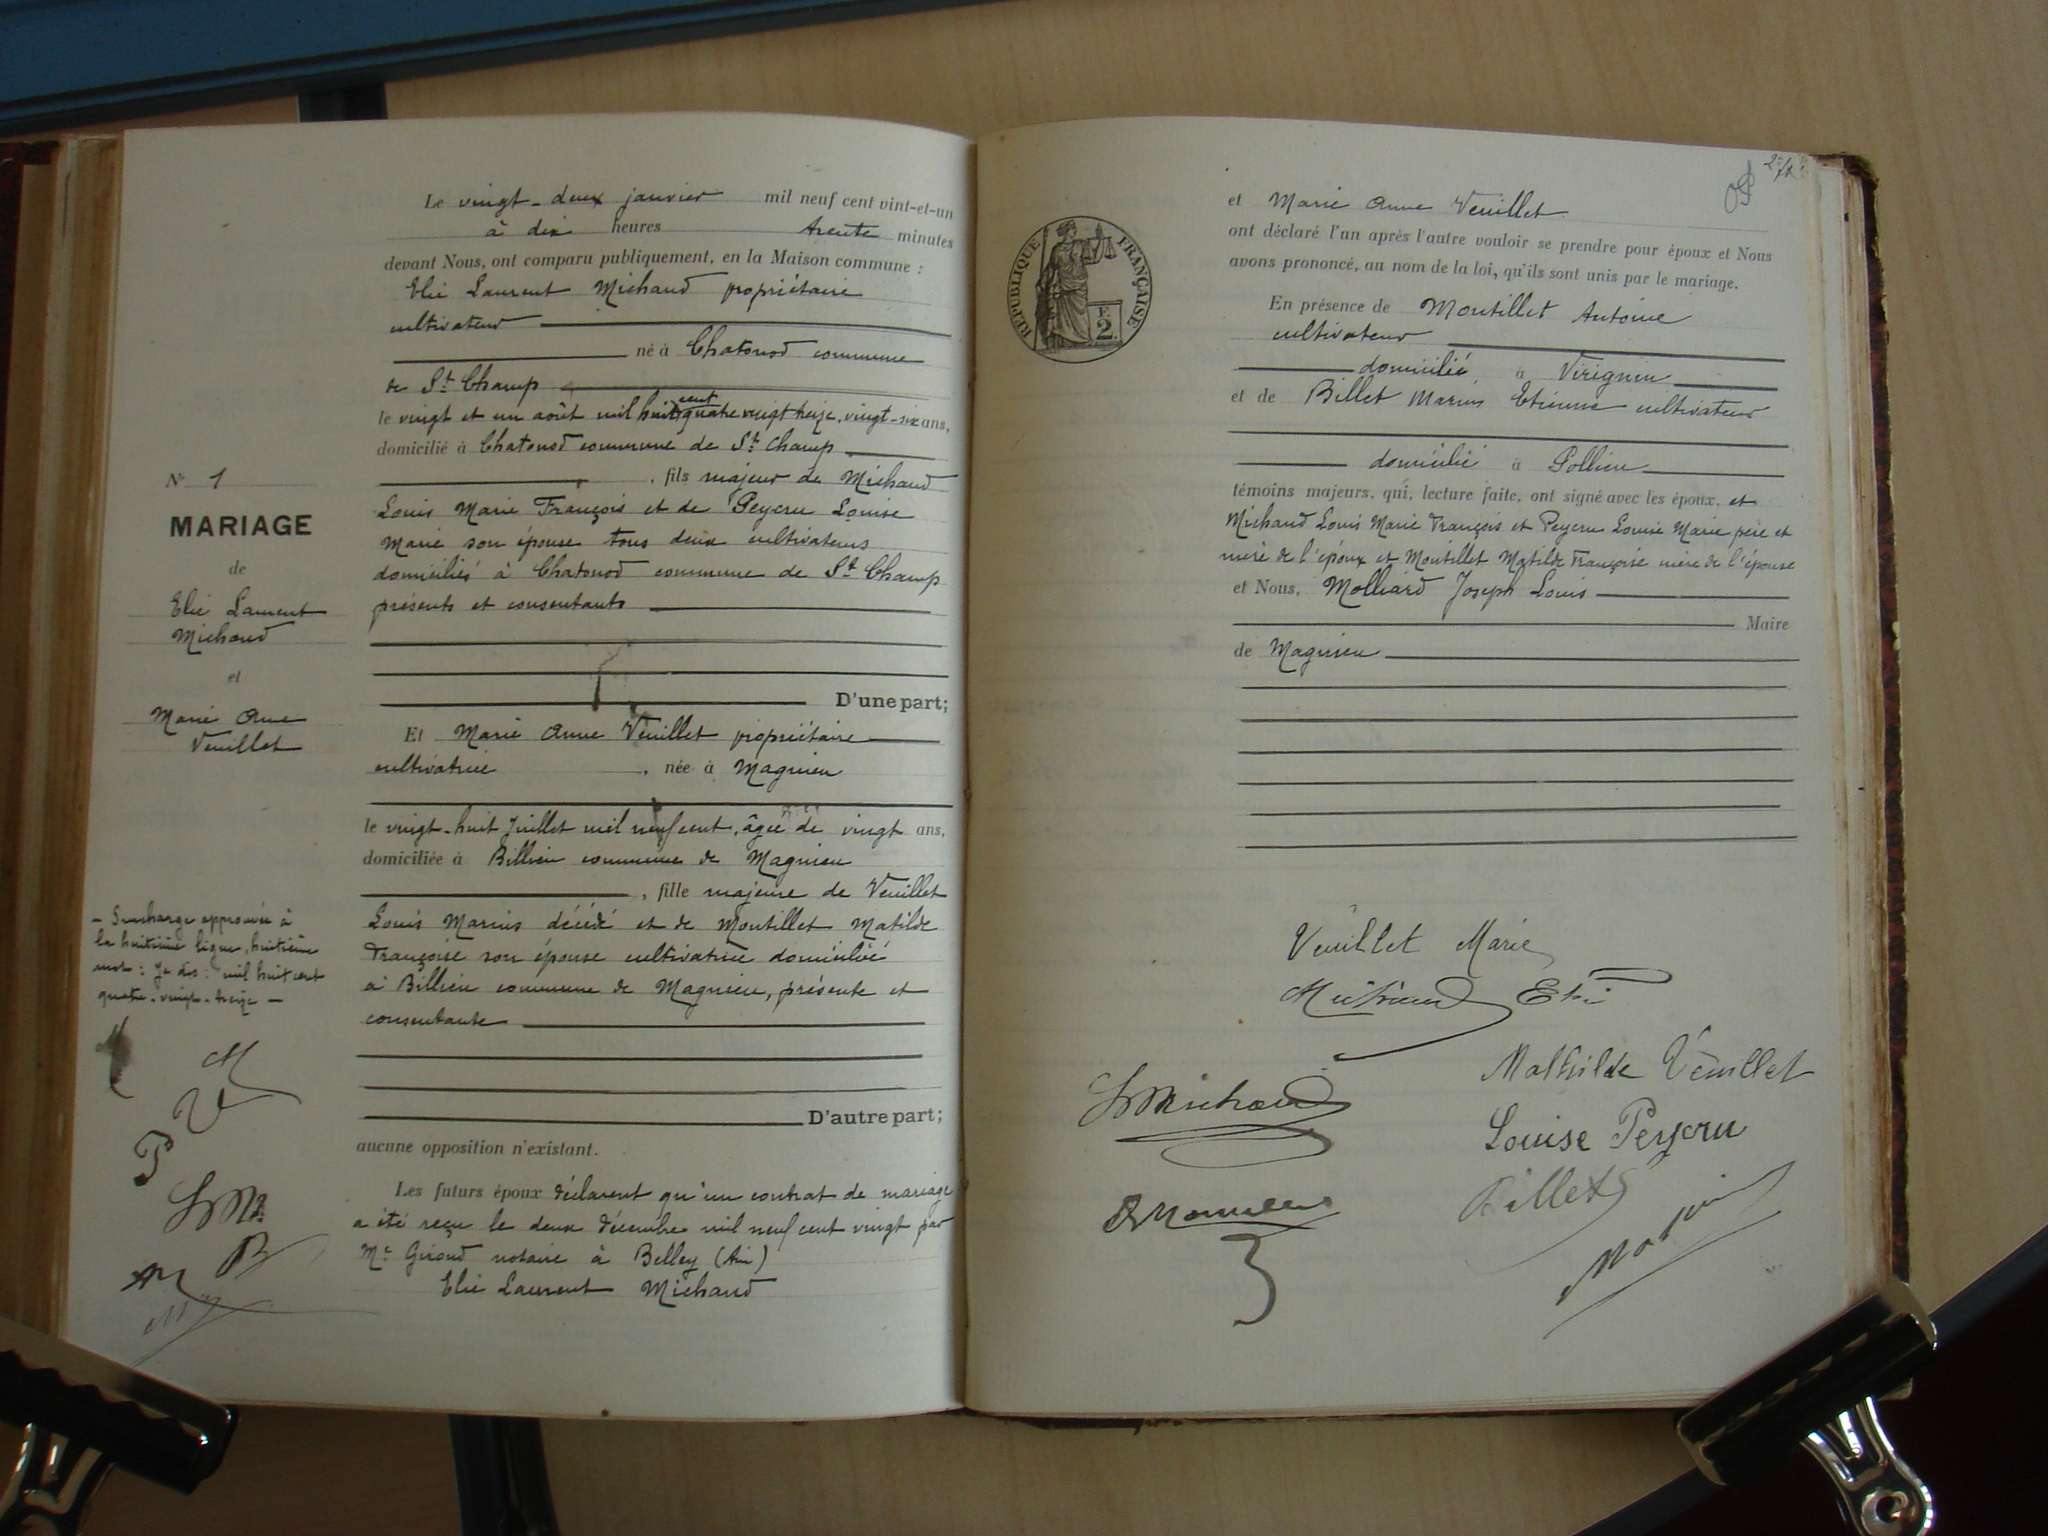 Le vingt-deux janvier mil neuf cent vint-et-un
à dix heures trente minutes
devant Nous, ont comparu publiquement, en la Maison commune :
Elie Laurent Michaud propriétaire
cultivateur
né à Chatonod commune
de St Champ
cent
le vingt et un août mil huit quatre vingt treize, vingt-six ans,
domicilié à Chatonod commune de St Champ
, fils majeur de Michaud
Louis Marie François et de Peycru Louise
Marie son épouse tous deux cultivateurs
domiciliés à Chatonod commune de St Champ
présents et consentants
D'une part;
Et Marie Anne Veuillet propriétaire
cultivatrice , née à Magnieu
le vingt-huit Juillet mil neuf cent, âgée de vingt ans,
domiciliée à Billieu commune de Magnieu
, fille majeure de Veuillet
Louis Marius décédé et de Montillet Matilde
Françoise son épouse cultivatrice domiciliée
à Billieu commune de Magnieu, présente et
consentante
D'autre part;
aucune opposition n'existant.
Les futurs époux déclarent qu'un contrat de mariage
a été reçu le deux décembre mil neuf cent vingt par
Me Giroud notaire à Belley (Ain)
Elie Laurent Michaud
No 1
MARIAGE
de
Elie Laurent
Michaud
et
Marie Anne
Veuillet
- Surcharge approuvée à
la huitième ligne, huitième
mot : Je dis : mil huit cent
quatre-vingt-treize -
M
V
P
LM
B
M
2
RÉPUBLIQUE FRANÇAISE
F.
2.
et Marie Anne Veuillet
ont déclaré l'un après l'autre vouloir se prendre pour époux et Nous
avons prononcé, au nom de la loi, qu'ils sont unis par le mariage.
En présence de Montillet Antoine
cultivateur
domicilié à Virignin
et de Billet Marius Etienne cultivateur
domicilié à Pollieu
témoins majeurs, qui, lecture faite, ont signé avec les époux, et
Michaud Louis Marie François et Peycru Louise Marie père et
mère de l'époux et Montillet Matilde Françoise mère de l'épouse
et Nous, Molliard Joseph Louis
Maire
de Magnieu
Veuillet Marie
Michaud Elie
Mathilde Veuillet
L Michaud
Louise Peycru
Billet